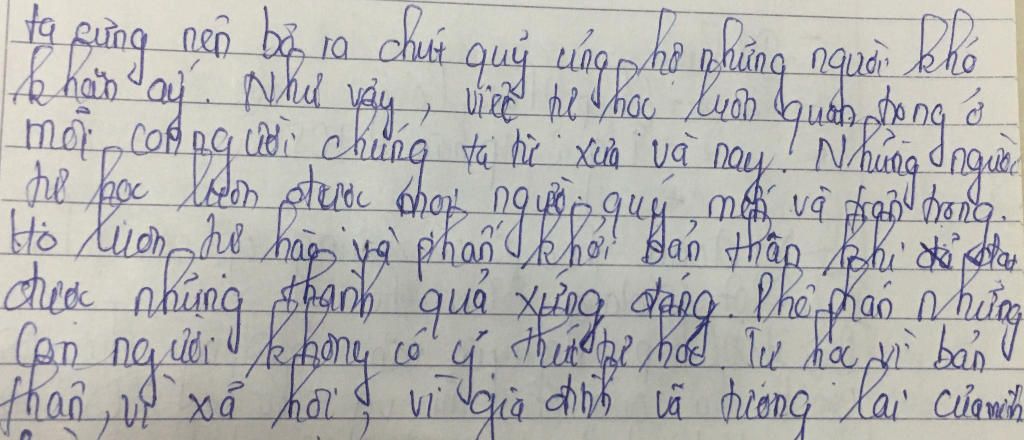 ta cũng nên bỏ ra chút quỹ ủng hộ những người khó
khăn ấy. Như vậy, việc tự học luôn quan trọng ở
mỗi con người chúng ta từ xưa và nay. Những người
tự học luôn được mọi người quý mến và trân trọng.
Họ luôn tự hào và phấn khởi bản thân khi đạt
được những thành quả xứng đáng. Phê phán những
con người không có ý thức tự học. Tự học vì bản
thân, vì xã hội, vì gia đình và tương lai của mình